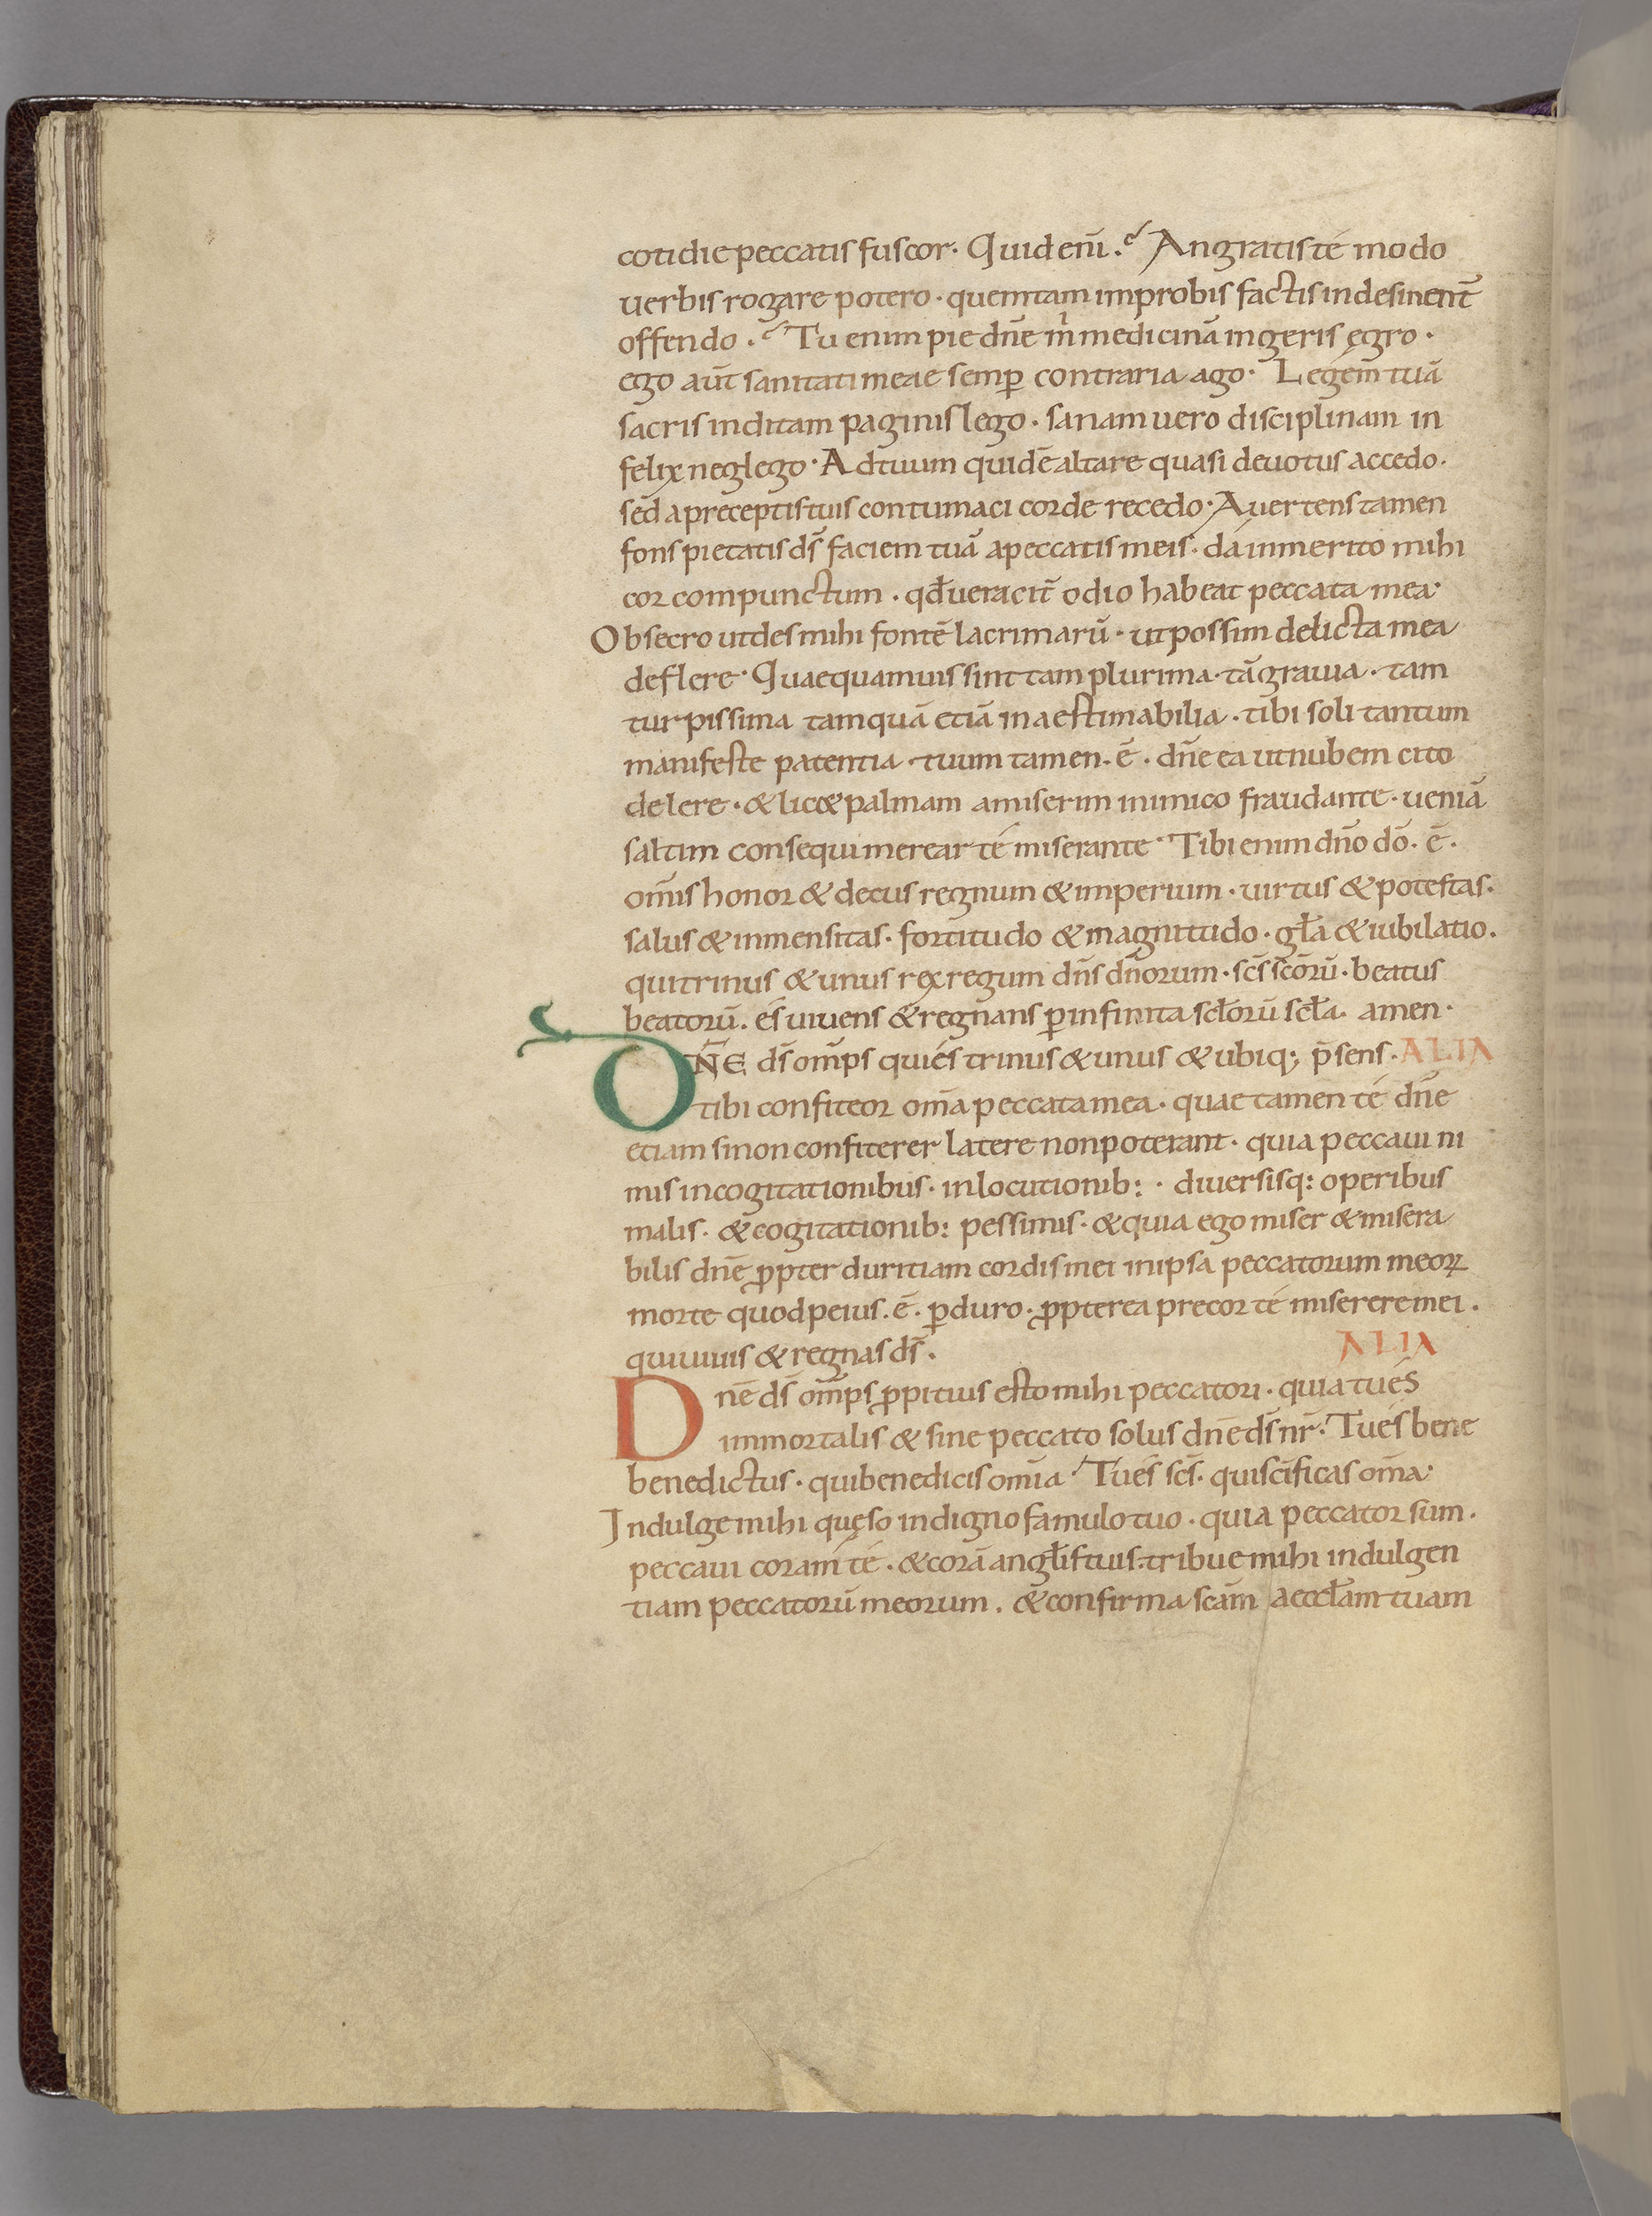 cotidie peccatis fuscor. Quid enī.? An gratis té modo
uerbis rogare potero. quem tam improbis factis indesinent̄
offendo.? Tu enim pie dn̄e m̄ medicinā ingeris ęgro.
ego aūt sanitati meae semꝑ contraria ago. Legem tuā
sacris inditam paginis lego. sanam uero disciplinam in
felix neglego. Ad tuum quidē altare quasi deuotus accedo.
sed a preceptis tuis contumaci corde recedo. Auertens tamen
fons pietatis ds̄ faciem tuā a peccatis meis. dá inmerito mihi
cor compunctum. qđ ueracit̄ odio habeat peccata mea.
Obsecro ut des mihi fontē lacrimarū. ut possim delicta mea
deflere. Quae quamuis sint tam plurima. tā grauia. tam
turpissima tamquā etiā inaestimabilia. tibi soli tantum
manifeste patentia. tuum tamen. ē. dn̄e ea ut nubem cito
delere. & lic& palmam amiserim inimico fraudante. ueniā
saltim consequi merear té miserante. Tibi enim dn̄o dō. ē.
om̄is honor & decus regnum & imperium. uirtus & potestas.
salus & inmensitas. fortitudo & magnitudo. gła & iubilatio.
qui trinus & unus rex regum dn̄s dn̄orum. scs̄ scōrū. beatus
beatorū. és uiuens & regnans ꝑ infinita scłorū scła. amen.
DN̄E ds̄ om̄ps qui és trinus & unus & ubiq; p̄sens. ALIA
tibi confiteor om̄a peccata mea. quae tamen té dn̄e
etiam si non confiterer latere non poterant. quia peccaui ni
mis in cogitationibus. in locutionib:. diuersisq: operibus
malis. & cogitationib: pessimis. & quia ego miser & misera
bilis dn̄e ꝓpter duritiam cordis mei in ipsa peccatorum meoꝝ
morte quod peius. ē. ꝑduro. ꝓpterea precor té miserere mei.
qui uiuis & regnas ds̄. ALIA
Dn̄e ds̄ om̄ps ꝓpitius esto mihi peccatori. quia tu és
immortalis & sine peccato solus dn̄e ds̄ nr̄. Tu és bene
benedictus. qui benedicis om̄ia. Tu és scs̄. qui scīficas om̄a.
Indulge mihi quęso indigno famulo tuo. quia peccator sum.
peccaui coram té. & corā angłis tuis. tribue mihi indulgen
tiam peccatorū meorum. & confirma scām aeccłam tuam